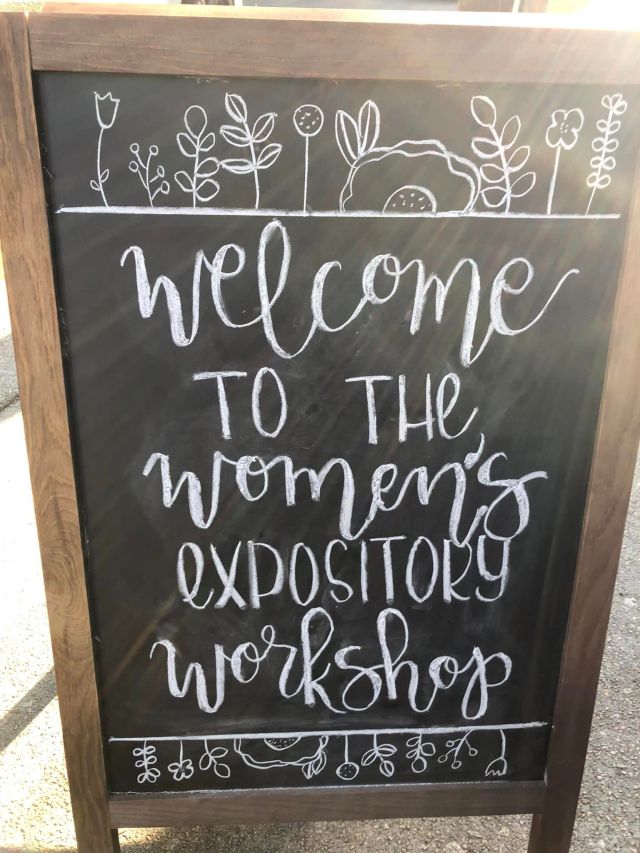 welcome
TO THe
women's
eXPOSITORY
workshop